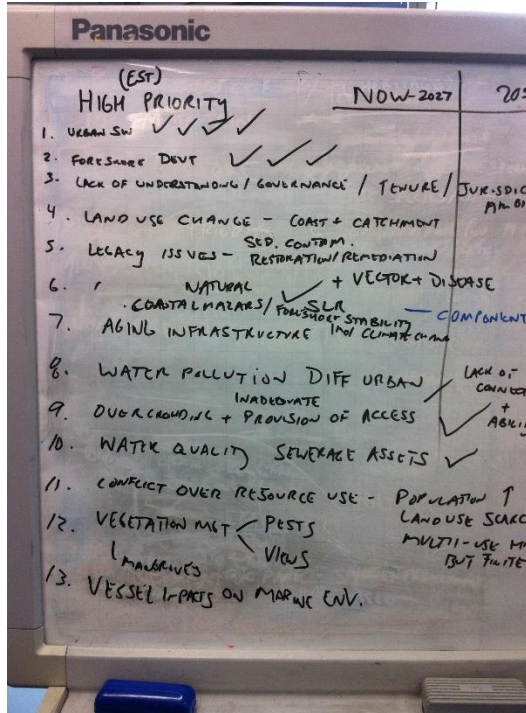 Panasonic
(EST)
HIGH PRIORITY
NOW-2027
1. URBAN SW ✓ ✓ ✓ ✓
2. FORESHORE DEVT ✓ ✓ ✓
3. LACK OF UNDERSTANDING / GOVERNANCE / TENURE / JURISDIC
4. LAND USE CHANGE - COAST + CATCHMENT
SED. CONTAM.
5. LEGACY ISSUES - RESTORATION/REMEDIATION
NATURAL ✓ + VECTOR + DISEASE
6. COASTAL HAZARS / SLR
FORESHORE STABILITY - COMPONENT
7. AGING INFRASTRUCTURE
8. WATER POLLUTION DIFF URBAN
LACK OF
INADEQUATE
CONNECT
9. OVERCROWDING + PROVISION OF ACCESS ✓
+
10. WATER QUALITY SEWERAGE ASSETS ✓
11. CONFLICT OVER RESOURCE USE - POPULATION ↑
LAND USE SCARC
MULTI-USE
BUT FINITE
12. VEGETATION MGT < PESTS
VIEWS
MANGRIVES
13. VESSEL IMPATS ON MARINE ENV.